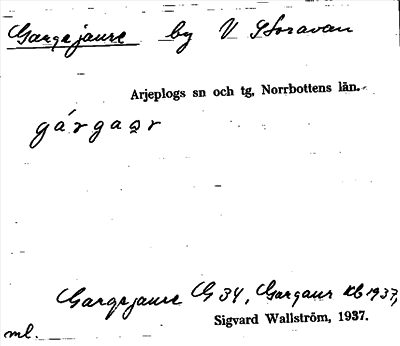 Gargejaure by V Storavan
Arjeplogs sn och tg, Norrbottens län.
gárgaər
Gargejaure G 34, Gargaur Kb 1937,
Sigvard Wallström, 1937.
ml.